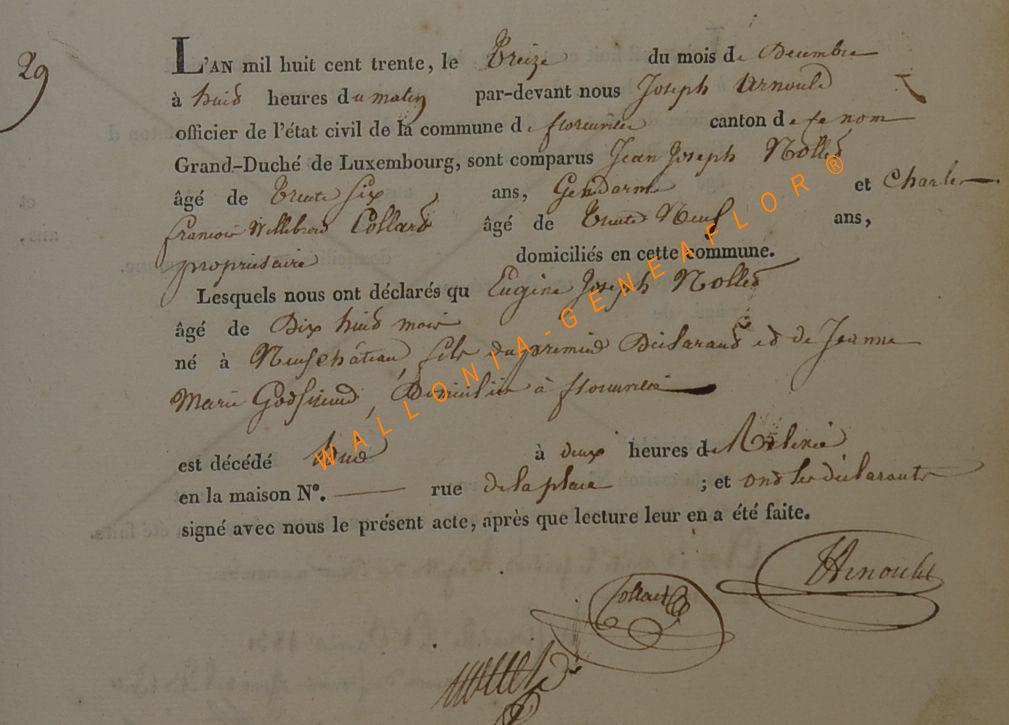 29
L'AN mil huit cent trente, le treize du mois de Decembre
à huit heures du matin par-devant nous Joseph Arnould
officier de l'état civil de la commune de florenville canton de ce nom
Grand-Duché de Luxembourg, sont comparus Jean Joseph Nollet
âgé de trente six ans, Gendarme et Charles
francois Willebrord Collard âgé de trente Neuf ans,
propriétaire domiciliés en cette commune.
Lesquels nous ont déclarés qu Eugène Joseph Nollet
âgé de Dix huit mois
né à Neufchâteau, fils du premier Déclarant et de Jeanne
Marie Godfrind, Domicilié à florenville
est décédé à deux heures de
en la maison N°. — rue de la place ; et ont les déclarants
signé avec nous le présent acte, après que lecture leur en a été faite.
Collard
Nollet
WALLONIA-GENEAFLOR ®